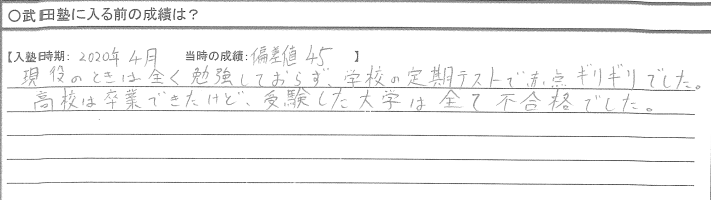 〇武田塾に入る前の成績は？
【入塾時期: 2020年 4月　当時の成績: 偏差値 45　】
現役のときは全く勉強しておらず、学校の定期テストで赤点ギリギリでした。
高校は卒業できたけど、受験した大学は全て不合格でした。